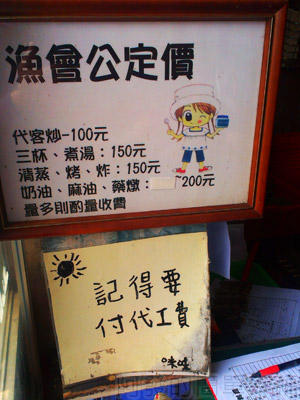 漁會公定價
代客炒-100元
三杯、煮湯：150元
清蒸、烤、炸：150元
奶油、麻油、藥燉：~200元
量多則酌量收費
記得要
付代工費